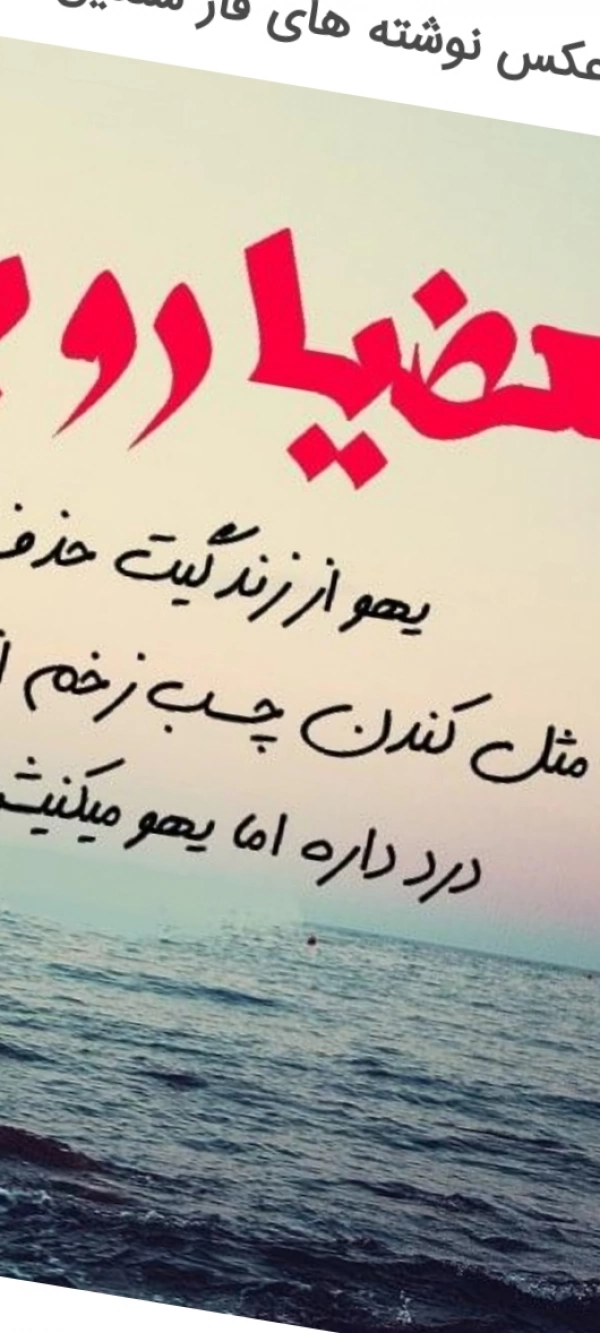 عکس نوشته های فاز سنگین
عضیا رو
یهو از زندگیت حذف
مثل کندن چسب زخم
درد داره اما یهو میکنیش